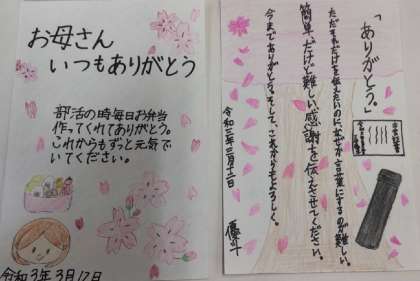 お母さん
いつもありがとう
部活の時毎日お弁当
作ってくれてありがとう。
これからもずっと元気で
いてください。
令和3年3月12日
「ありがとう。」
ただそれだけを伝えたいのになぜか言葉にするのが難しい。
簡単だけど難しい感謝を伝えさせてください。
今までありがとう。そして、これからもよろしく。
令和三年三月十二日
優斗